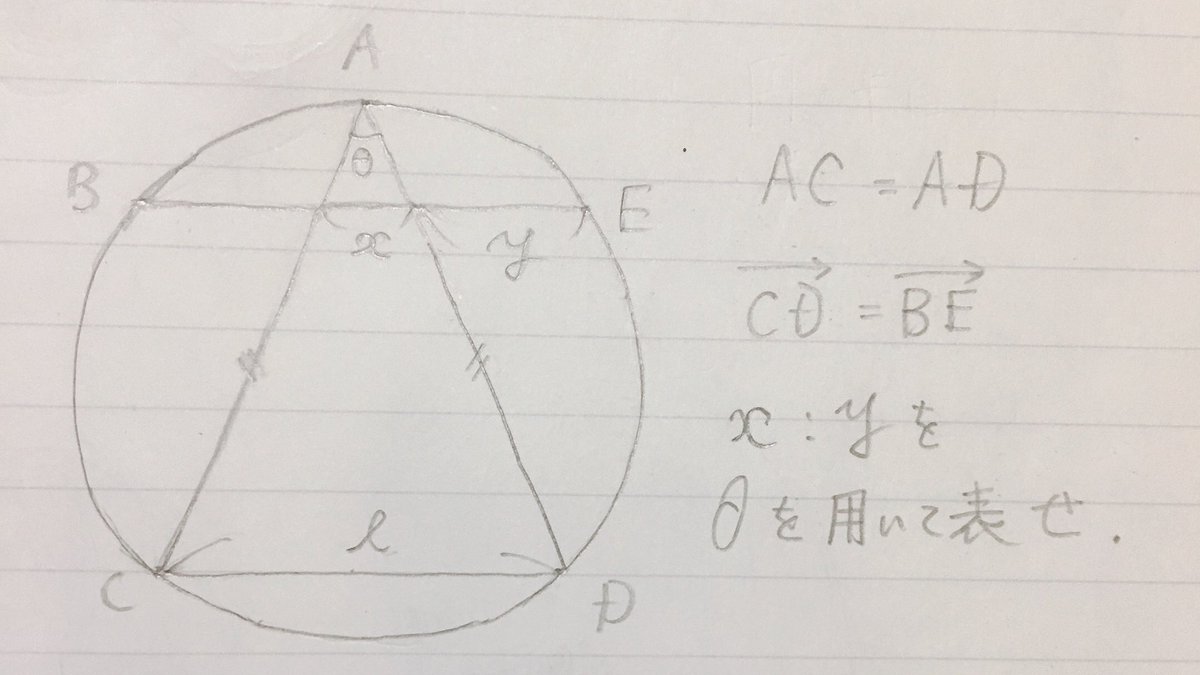 A
B
θ
E
x
y
l
C
D
AC = AD
→CD = →BE
x : y を
θを用いて表せ.